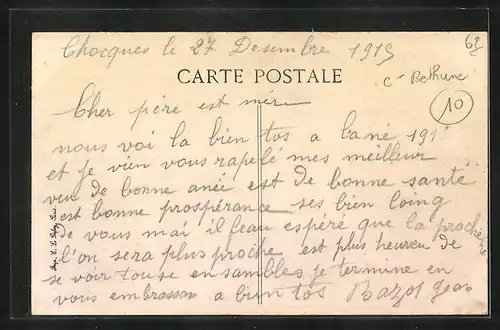 Chocques le 27 Desembre 1915
62
CARTE POSTALE
c- Bethune
10
Cher père est mère
nous voi la bien tos a lané 191
et je vien vous rapelé mes meilleur
veu de bonne anée est de bonne santé
est bonne prospérance ses bien loing
de vous mai il feau espéré que la prochène
l'on sera plus proche est plus heureu de
se voir touse en sambles je termine en
vous embrassan a bien tos Bazot Jean